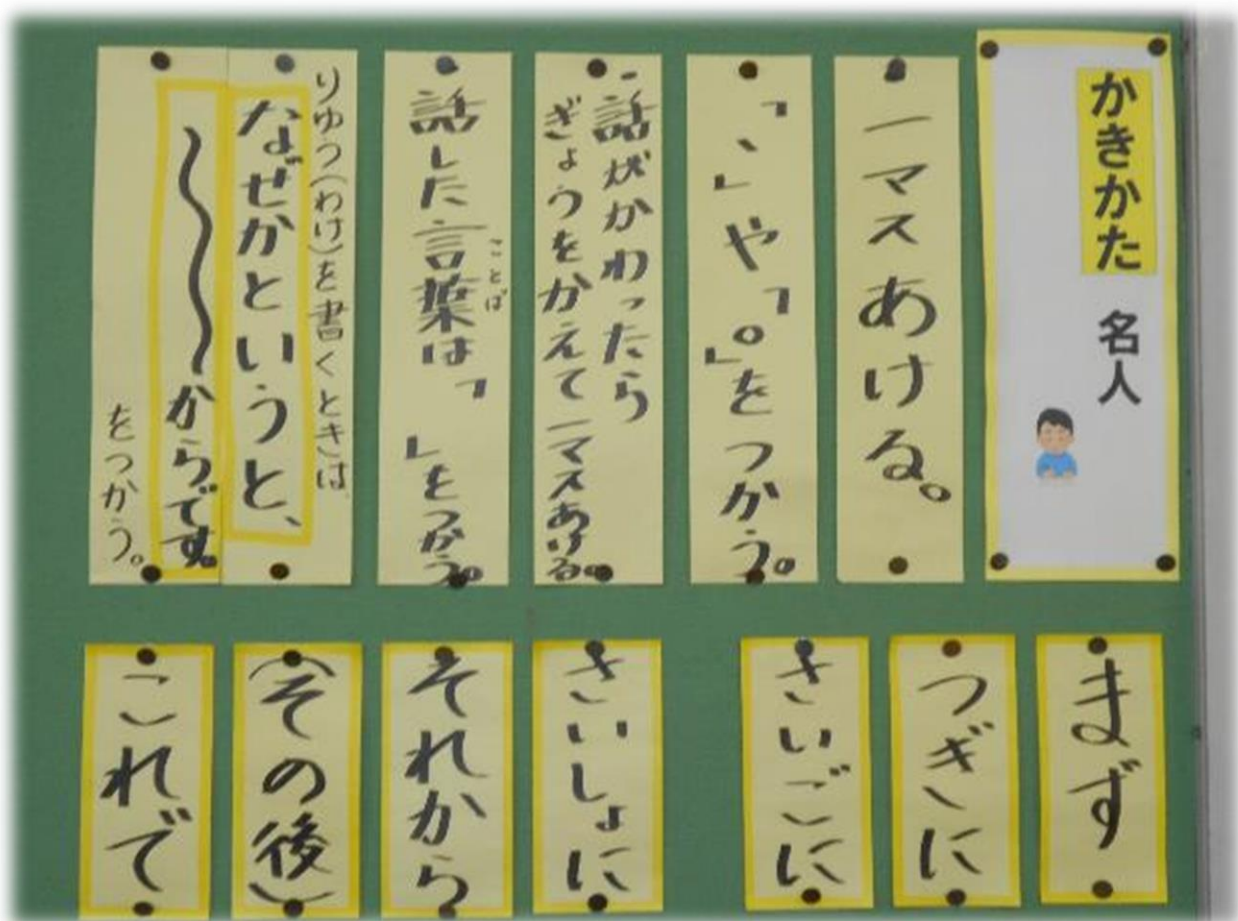 かきかた 名人
一マスあける。
「、」や「。」をつかう。
・話がかわったら
ぎょうをかえて一マスあける。
話した言葉は「 」をつかう。
ことば
りゆう(わけ)を書くときは、
なぜかというと、
〜からです。
をつかう。
まず
つぎに
さいごに
さいしょに
それから
(その後)
これで